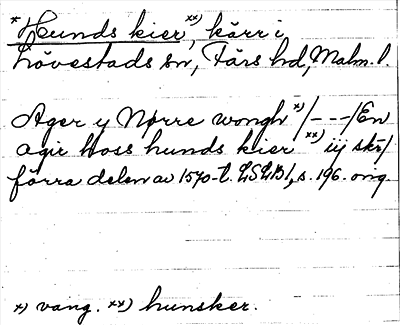 * Hunds kier xx), kärr i
Lövestads sn, Färs hd, Malm. l.
Ager y Nørre wongh x) /- - -/ En
agir hoss hunds kier xx) iij skr/
förra delen av 1570-t. LSLB1, s. 196. orig.
x) vang. xx) hunsker.